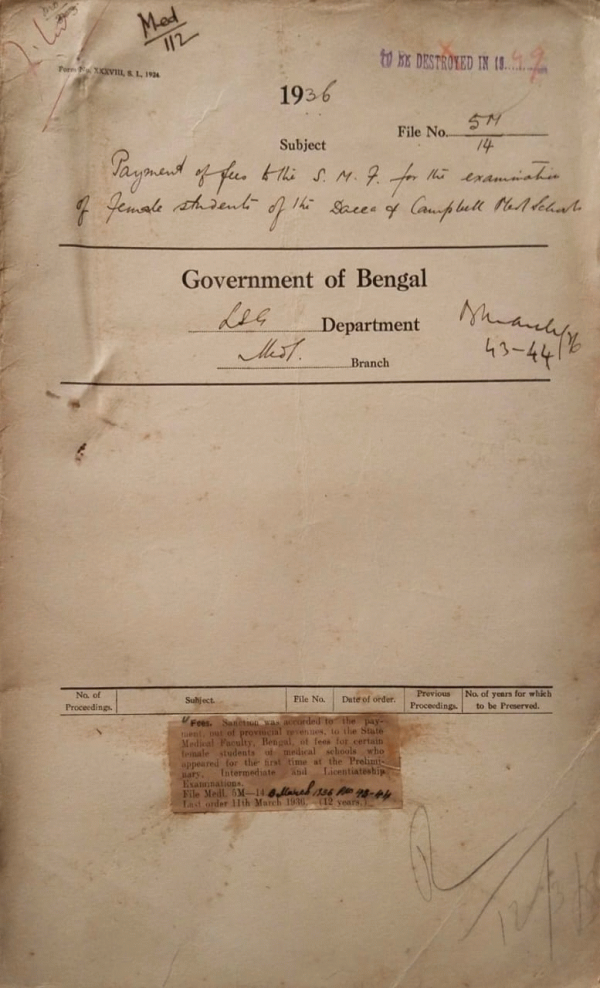 Med
112
Form No. XXXVIII, S. I., 1934.
TO BE DESTROYED IN 19
1936
File No. 5M
14
Subject
Payment of fees to the S. M. F. for the examination
of female students of the Dacca & Campbell Med Schools
Government of Bengal
LSG Department
43-44
Medl. Branch
No. of Proceedings.
Subject.
File No.
Date of order.
Previous Proceedings.
No. of years for which to be Preserved.
Fees. Sanction was accorded to the pay-
ment, out of provincial revenues, to the State
Medical Faculty, Bengal, of fees for certain
female students of medical schools who
appeared for the first time at the Prelimi-
nary, Intermediate and Licentiateship
Examinations.
File Medl. 5M—14 B March 1936 43-44
Last order 11th March 1936. (12 years.)